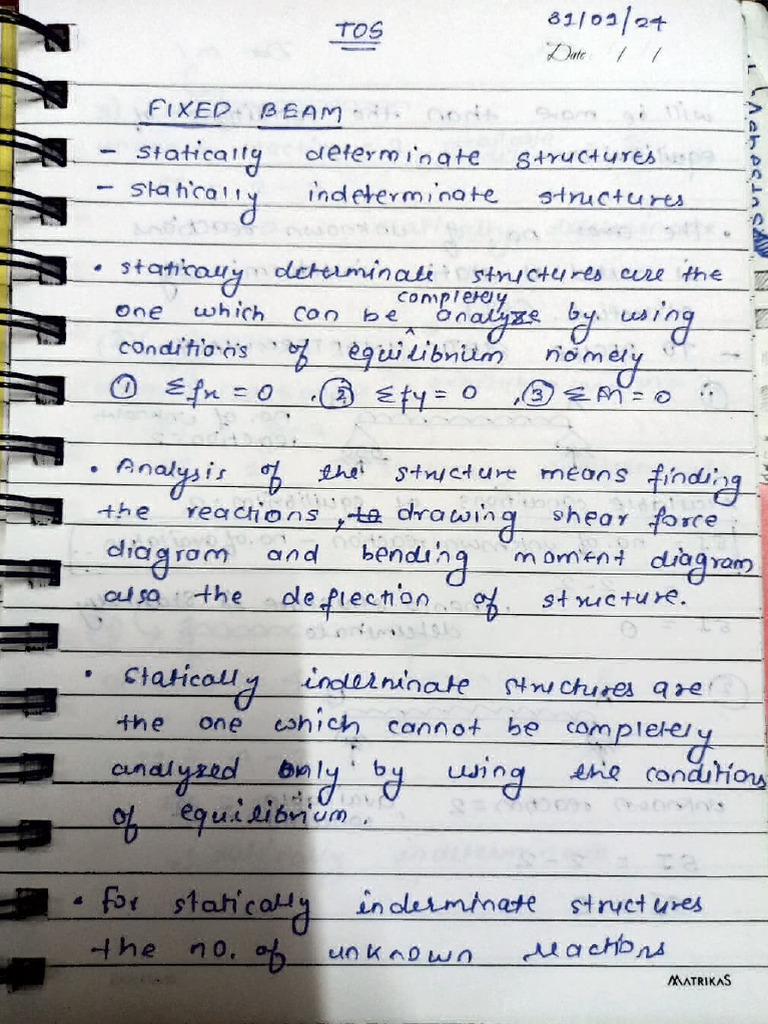 TOS
31/01/24
Date / /
FIXED BEAM
- statically determinate structures
- statically indeterminate structures
• statically determinate structures are the
completely
one which can be ^ analyze by using
conditions of equilibrium namely
① Σfx = 0 , ② Σfy = 0 , ③ ΣM = 0
• Analysis of the structure means finding
the reactions, to drawing shear force
diagram and bending moment diagram
also the deflection of structure.
• Statically inderminate structures are
the one which cannot be completely
analyzed only by using the conditions
of equilibrium.
• For statically inderminate structures
the no. of unknown reactions
MATRIKAS